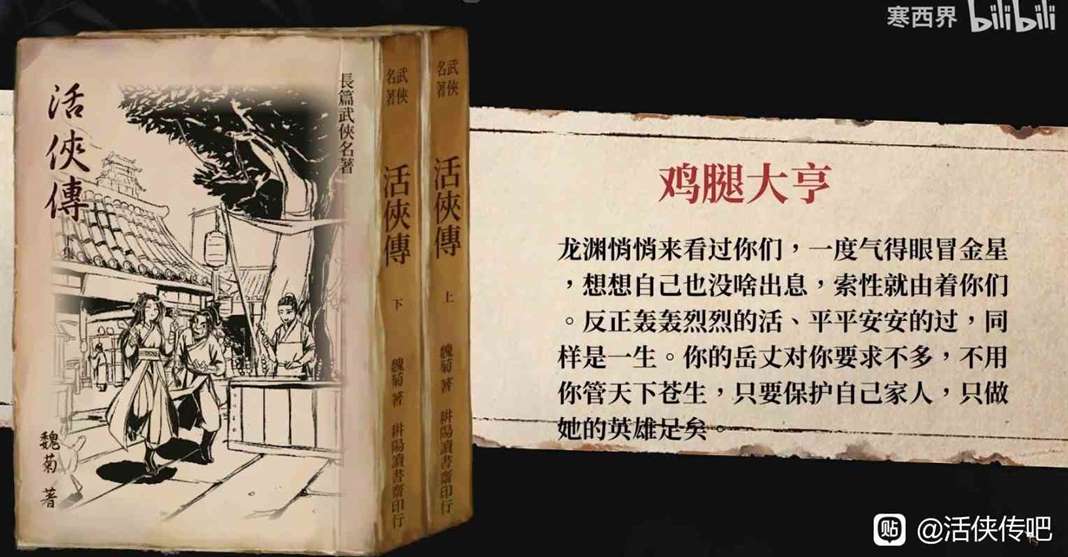 寒西界 bilibili
活俠傳
長篇武俠名著
魏菊 著
武俠名著
活俠傳
下
魏菊 著
耕陽讀書齋印行
武俠名著
活俠傳
上
魏菊 著
耕陽讀書齋印行
鸡腿大亨
龙渊悄悄来看过你们，一度气得眼冒金星
，想想自己也没啥出息，索性就由着你们
。反正轰轰烈烈的活、平平安安的过，同
样是一生。你的岳丈对你要求不多，不用
你管天下苍生，只要保护自己家人，只做
她的英雄足矣。
贴 @活侠传吧